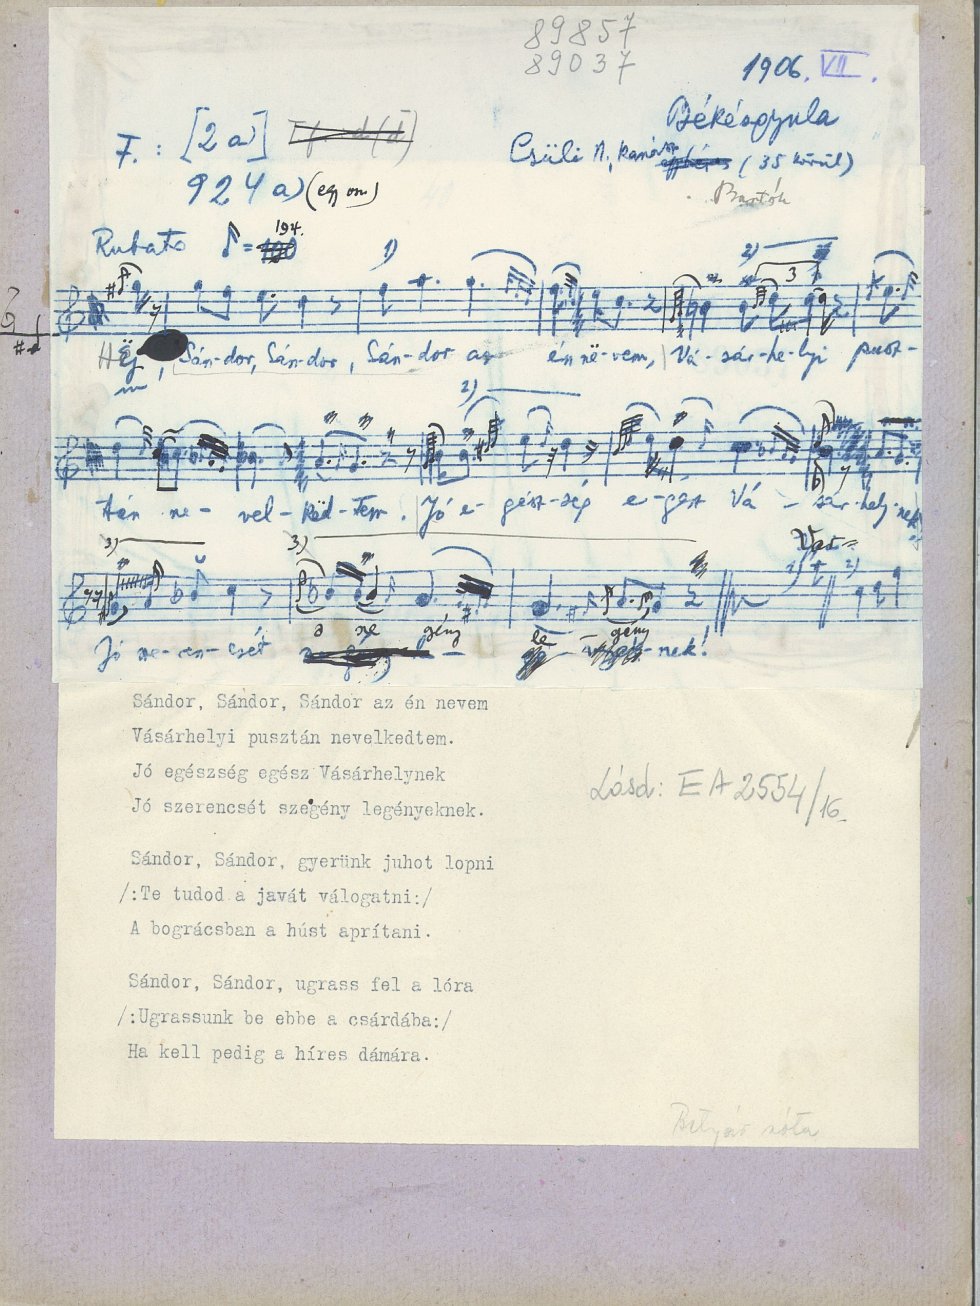 89857
89037
1906. VII.
Békésgyula
F.: [2 a]
Csüli N. kanász (35 körül)
924 a) (egy om)
Bartók
Rubato ♪ = 194.
1) 2) 3
Hëj, Sándor, Sándor, Sán-dor az én në-vem, Vá-sár-he-lyi pusz-
2)
tán ne-vel-këd-tem. Jó e-gész-ség e-gész Vá-sár-hely-nek
3) 3)
1) 2)
Jó sze-ren-csét a sze gény le - gény-nek!
Sándor, Sándor, Sándor az én nevem
Vásárhelyi pusztán nevelkedtem.
Jó egészség egész Vásárhelynek
Jó szerencsét szegény legényeknek.
Lásd: EA 2554/16.
Sándor, Sándor, gyerünk juhot lopni
/:Te tudod a javát válogatni:/
A bográcsban a húst aprítani.
Sándor, Sándor, ugrass fel a lóra
/:Ugrassunk be ebbe a csárdába:/
Ha kell pedig a híres dámára.
Betyár nóta